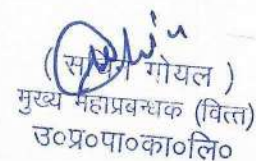 गोयल )
मुख्य महाप्रबन्धक (वित्त)
उ०प्र०पा०का०लि०